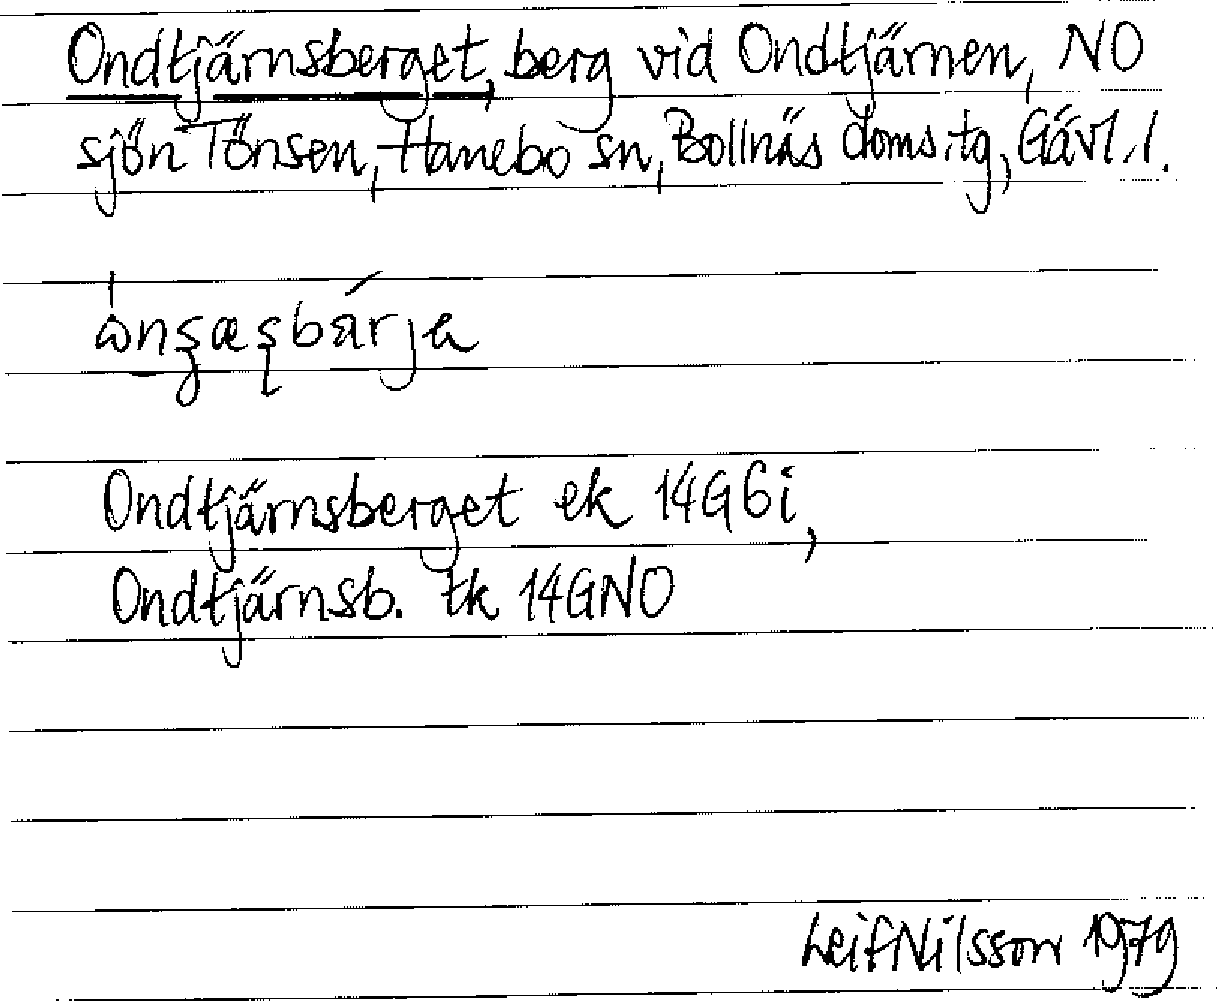 Ondtjärnsberget, berg vid Ondtjärnen, NO
sjön Tönsen, Hanebo sn, Bollnäs doms.tg, Gävl.l.
Ondtjärnsberget ek 14G6i,
Ondtjärnsb. tk 14GNO
Leif Nilsson 1979